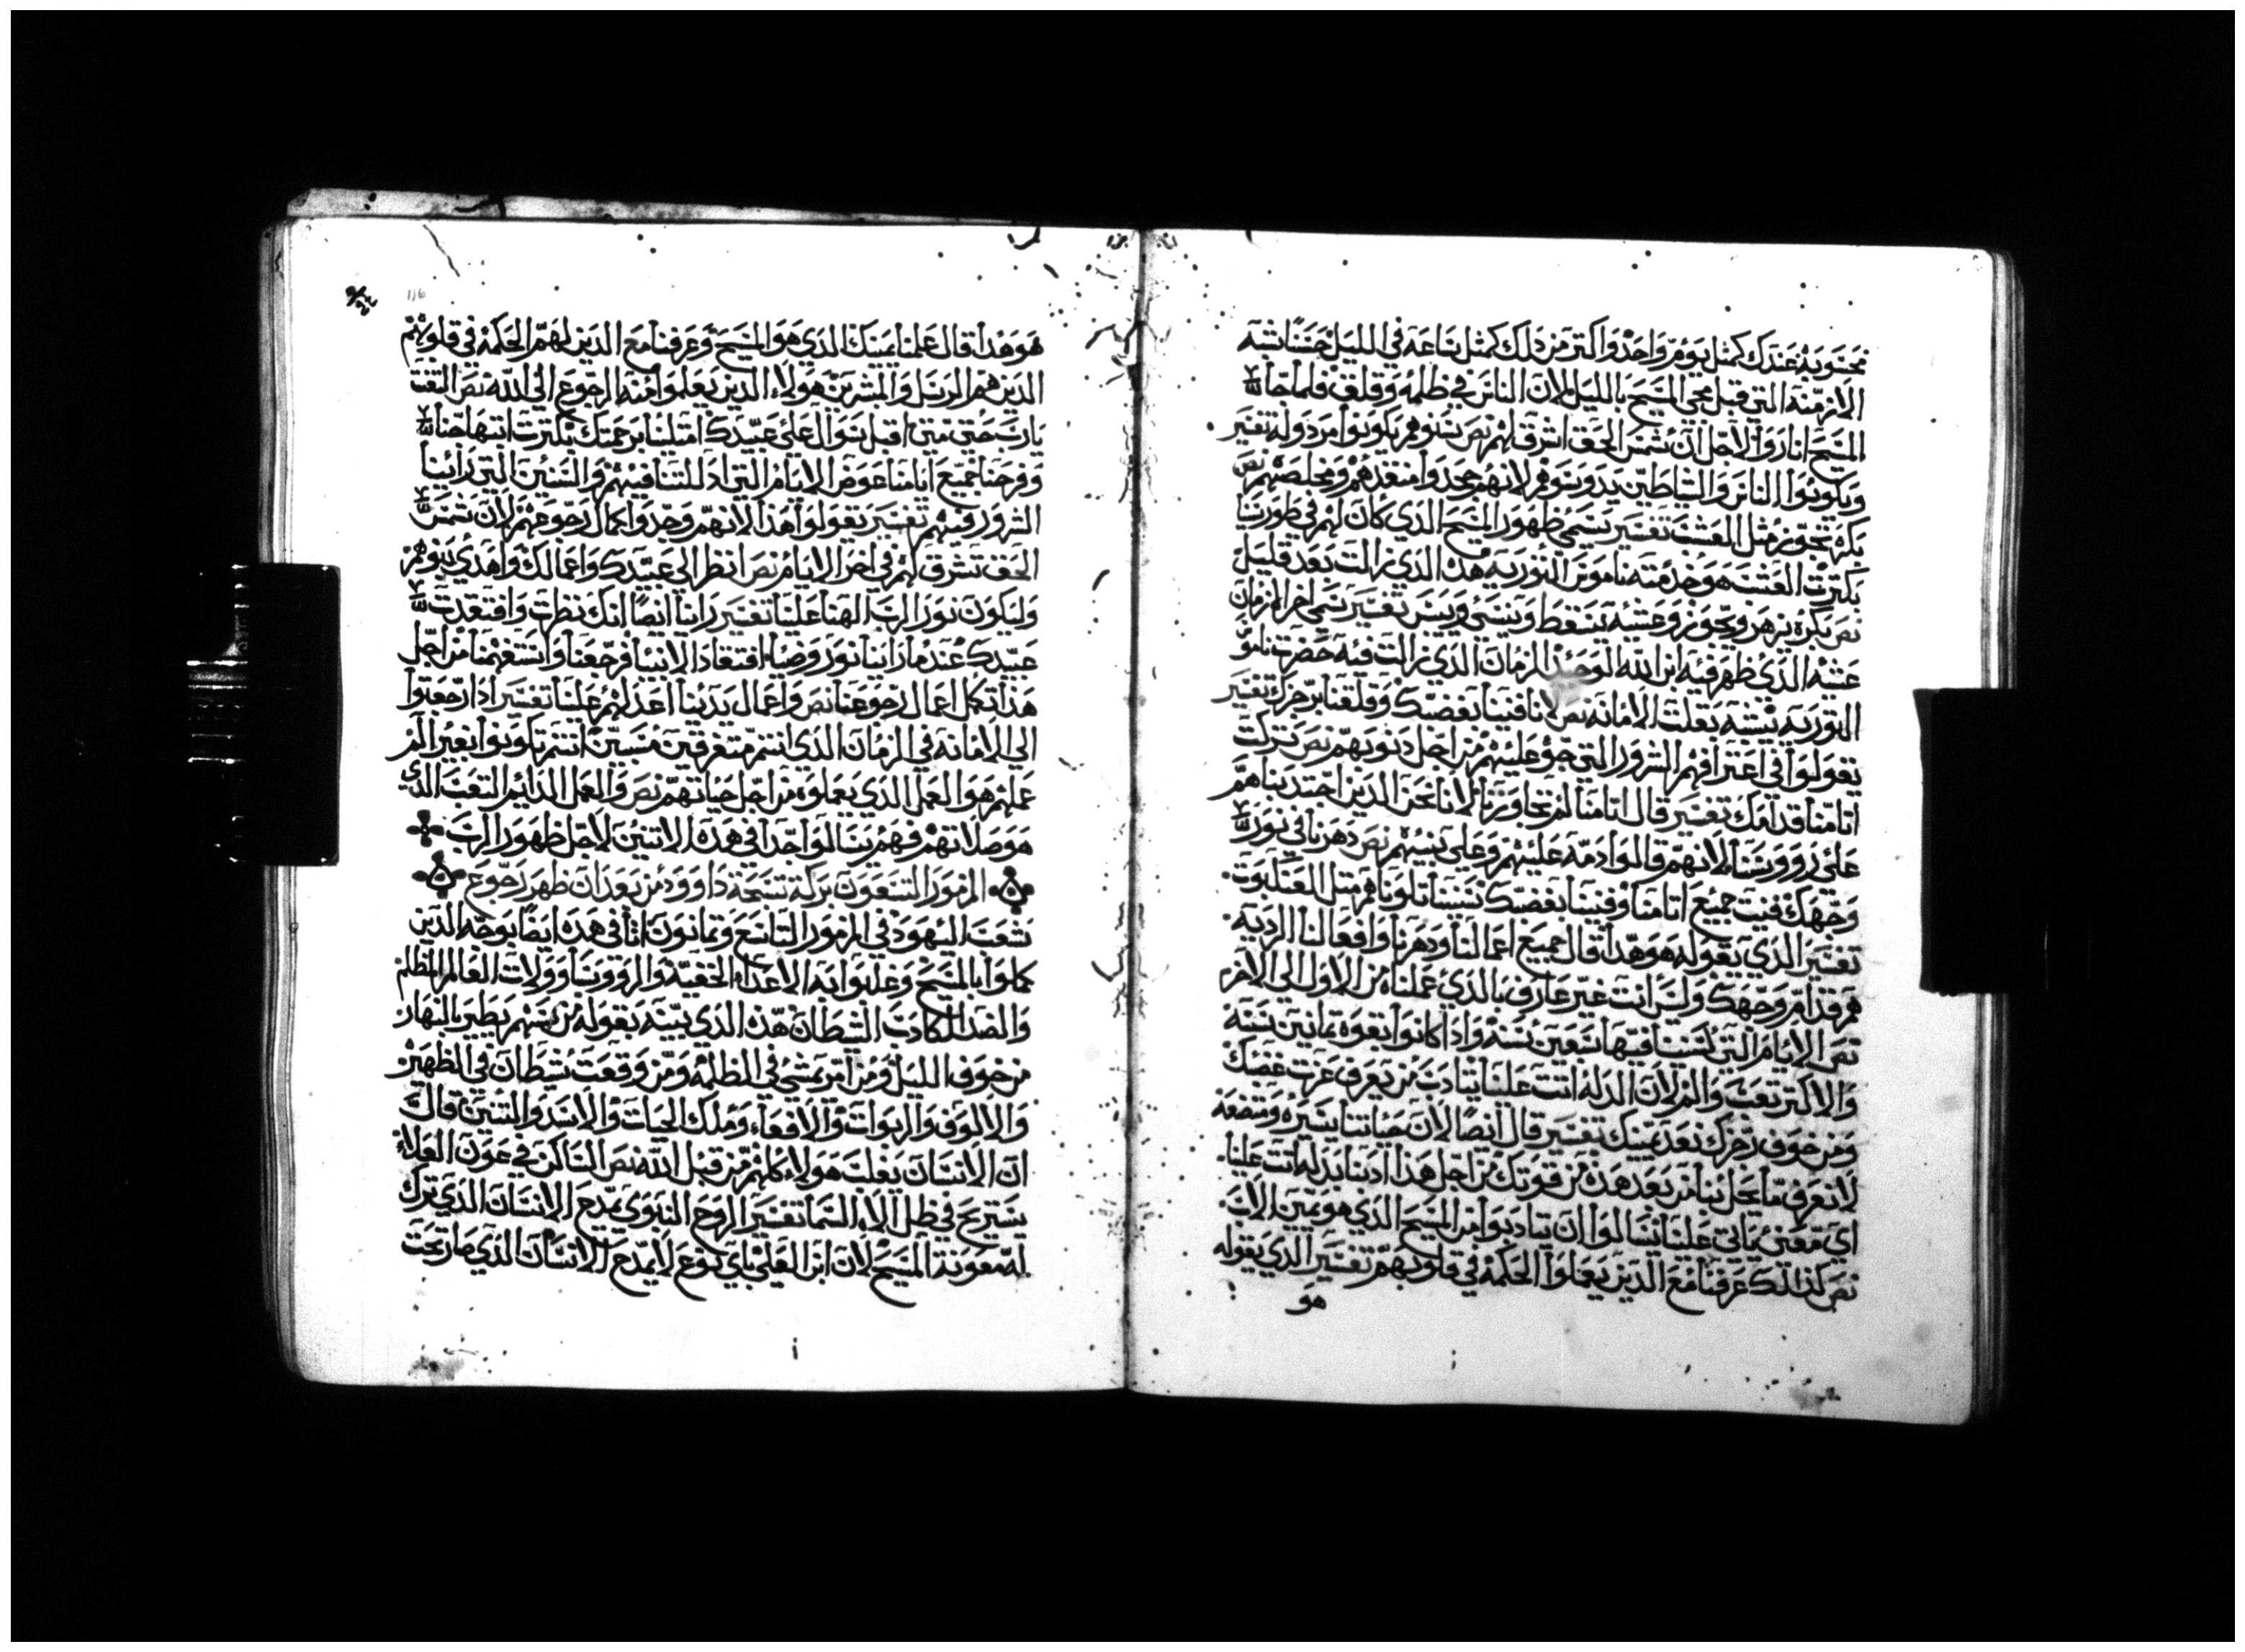 محسوبه عندك كمثل يوم واحد واكتر من دلك كمثل ساعه في الليل حسنا شبه
الازمنه التي قبل مجي المسيح بالليل لان الناس في ظلمه وقلق فلما جا
المسيح انار ولاجل ان شمس الحق اشرق لهم نص سنوهم يكونوا مردوله تفسير
ويكونوا الناس والشياطين يدوسوهم لانهم جحدوا منقدهم ومخلصهم نص
بكره تجوز مثل العشب تفسير يسمي ظهور المسيح الدي كان لهم في طور سينا
بكرت العشب هو خدمته ناموس التوريه هده الدي زالت بعد قليل
نص بكره يزهر ويجوز وعشيه يسقط وينسي وييبس تفسير يسمي اخر الزمان
عشيه الدي ظهر فيه ابن الله الوحيد الزمان الدي زالت فيه حضرت ناموس
التوريه بقلت الامانه نص لاننا فنينا بغضبك وقلقنا برجزك تفسير
يقولوا في اعترافهم الشرور التي جو عليهم من اجل دنوبهم نص تركت
اتامنا قدامك تفسير قال اتامنا لم تجاوزنا لاننا نحن الدين اجتدبناهم
علي رووسنا لانهم قالوا دمه عليهم وعلي بنيهم نص دهرنا في نور
وجهك فنيت جميع ايامنا وفنينا بغضبك سنيننا تلونا هم مثل العنكبوت
تفسير الدي يقوله هو هدا قال جميع اعمالنا ودهرنا وافعالنا الرديه
هم قدام وجهك وليس انت غير عارف بالدي عملناه من الاول الي الاخر
نص الايام التي لسنينا فيها سبعين سنه وادا كانوا بقوه تمانين سنه
والاكتر تعب والم لان المدله اتت علينا يتادب من يعرف عزت غضبك
ومن خوف رجزك نعد يمينك تفسير قال ايضا لان حياتنا يسيره وصعبه
لا نعرف ما يحل بنا من بعد هده من قوتك من اجل هدا ادبنا بمدله اتت علينا
اي معني ياتي علينا يسالوا ان يتادبوا من المسيح الدي هو يمين الاب
نص كدالك عرفنا مع الدين يعملوا الحكمه في قلوبهم تفسير الدي يقوله
هو
116
هو هدا قال علمنا يمينك الدي هو المسيح وعرفنا مع الدين لهم الحكمه في قلوبهم
الدين هم الرسل والمبشرين هولاء الدين يعلموا منه الرجوع الي الله نص التفت
يا رب حتي متي اقبل سوال علي عبيدك امتلينا برحمتك بكرت ابتهاجنا
وفرحنا جميع ايامنا عوض الايام التي ادللتنا فيهم والسنين التي راينا
الشرور فيهم تفسير يقولوا هدا لانهم وجدوا كمال رجوعهم لان شمس
الحق تشرق لهم في اخر الايام نص انظر الي عبيدك واعمالك واهدي بنوهم
وليكون نور الرب الهنا علينا تفسير راينا ايضا انك نظرت وافتقدت
عبيدك عند ما راينا نور وضيا افتقاد الانبيا فرجعنا واستفهمنا من اجل
هدا تكمل اعمال رجوعنا نص واعمال يدينا اعدلهم علينا تفسير ادا رجعتوا
الي الامانه في الزمان الدي انتم متفرقين مسبيين انتم تكونوا بغير الم
عملهم هو العمل الدي يعملوه من اجل حياتهم نص والعمل الدايم التعب الدي
هو صلاتهم وفهم يسالوا احدا في هده الاتنين لاجل ظهور الرب
المزمور التسعون بركة تسبحة داوود من بعد ان ظهر رجوع
شعب اليهود في المزمور التاسع وتمانون اتا في هده ايضا بوجه الدين
كملوا بالمسيح وغلبوا به الاعداء الخفيه والرووسا وولات العالم المظلم
والضد الكادب الشيطان هده الدي يبينه بقوله من سهم يطير بالنهار
من خوف الليل ومن امر يمشي في الظلمه ومن وقعت شيطان في الظهيره
والالوف والربوات والافعاء وملك الحيات والاسد والتنين قال
ان الانسان يغلب هولاء كلهم من قبل الله نص الساكن في عون العلاء
يستريح في ظل الاه السما تفسير الروح النبوي يمدح الانسان الدي ترك
له معونة المسيح لان ابن العلي باي نوع لا يمدح الانسان الدي صار تحت